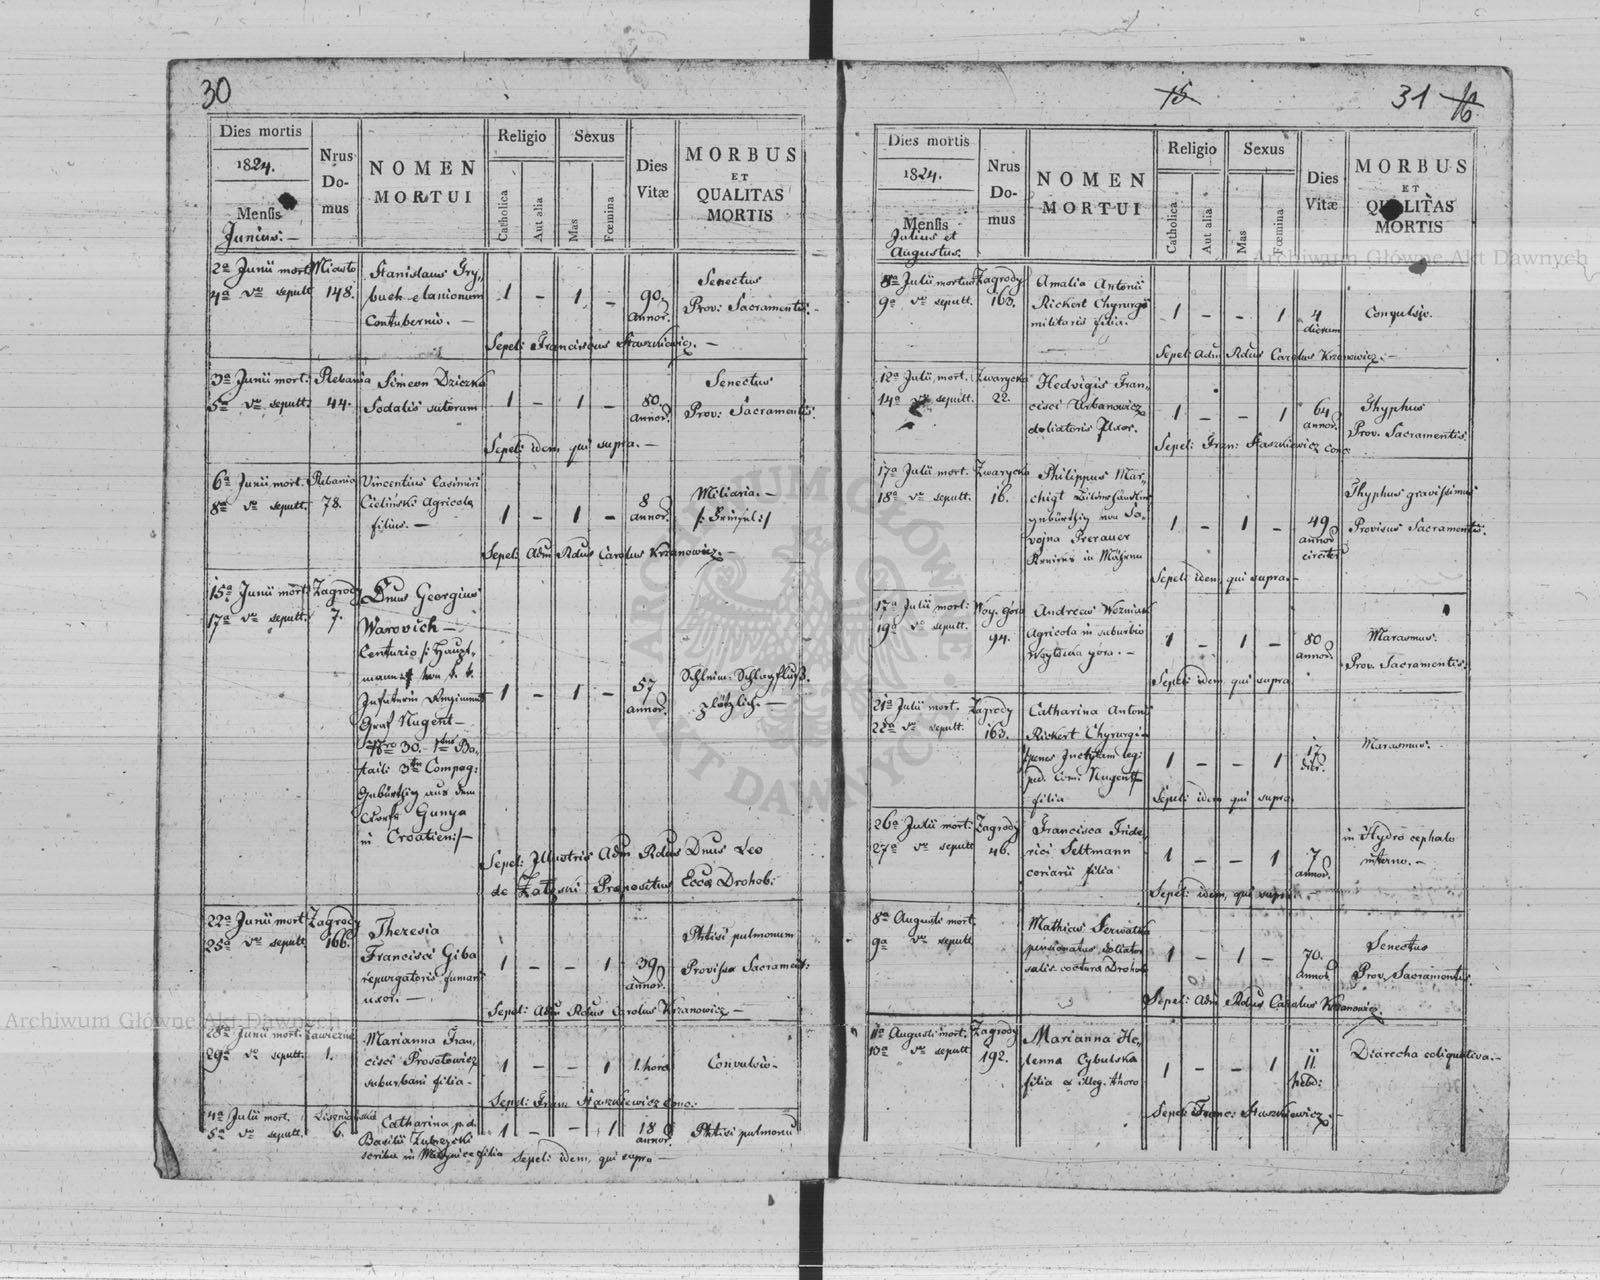 30
Dies mortis
1824.
Mensis
Junius. —
Nrus
Do-
mus
NOMEN
MORTUI
Religio
Catholica
Aut alia
Sexus
Mas
Fœmina
Dies
Vitæ
MORBUS
ET
QUALITAS
MORTIS
2a Junii mort. Miasto Stanislaus Gry-
4a do sepult. 148. Contubernio. —
1 – 1 – 90 annor.
Senectus
Prov: Sacramentis. —
Sepel: Franciscus Staszkiewicz. —
3a Junii mort. Plebania Simeon Dziezka
5a do sepult. 44. Sodalis sutorum
1 – 1 – 80 annor.
Senectus
Prov: Sacramentis.
Sepel: idem qui supra. —
6a Junii mort. Plebania Vincentius Casimiri
8a do sepult. 78. Cieliński Agricola
filius. —
1 – 1 – 8 annor.
Miliaria. —
Sepel: Adm Rdus Carolus Krzanowicz. —
15a Junii mort. Zagrody Dnus Georgius
17a do sepult. 7. Warovich —
Centurio /: Haupt-
mann von k. k.
Infanterie Regiment
Graf Nugent —
Nro 30. 1ten Ba-
tail: 3ten Compag:
Gebürthig aus dem
Gunya
in Croatien :/—
1 – 1 – 57 annor.
Schleim-Schlagfluß.
plötzlich. —
Sepel: Illustris Adm Rdus Dnus Leo
de Załęski Praepositus Eccae Drohob:
22a Junii mort. Zagrody Theresia
25a do sepult. 166. Francisci Giba
repurgatoris fumar:
uxor. —
1 – – 1 39 annor.
Phtisi pulmonum
Provisa Sacrament:
Sepel: Adm Rdus Carolus Krzanowicz —
28a Junii mort. Zawiezna Marianna Fran-
29a do sepult. 1. cisci Prosotowicz
suburbani filia. —
1 – – 1 1. hora
Convulsio. —
Sepel: Fran: Staszkiewicz conc:
4a Julii mort. Catharina p. d.
5a do sepult. 6. Basilii
scribae in filia
1 – – 1 18 annor.
Phtisi pulmonu
Sepel: idem, qui supra —
15
31 16
Dies mortis
1824.
Mensis
Julius et
Augustus.
Nrus
Do-
mus
NOMEN
MORTUI
Religio
Catholica
Aut alia
Sexus
Mas
Fœmina
Dies
Vitæ
MORBUS
ET
QUALITAS
MORTIS
8a Julii mortuus Zagrody Amalia Antonii
9a do sepult. 163. Rickert Chyrurgi
militaris filia.
1 – – 1 4 dierum
Convulsio.
Sepel: Adm Rdus Carolus Krzanowicz. —
12a Julii mort. Zwarycka Hedvigis Fran-
14a do sepult. 22. cisci Urbanowicz
doliatoris Uxor.
1 – – 1 64 annor.
Thyphus
Prov. Sacramentis.
Sepel: Fran: Staszkiewicz conc:
17a Julii mort. Zwarycka Philippus Mar-
18a do sepult. 16. chigt Bilderhändler
gebürthig von Sa-
vojna Prerauer
Kreises in Mähren
1 – 1 – 49 annor circiter
Thyphus gravissimus
Provisus Sacramentis.
Sepel: idem, qui supra. —
17a Julii mort: Woy. góra Andreas Wozniak
19a do sepult. 94. Agricola in suburbio
Woytowska gora. —
1 – 1 – 80 annor.
Marasmus.
Prov. Sacramentis.
Sepel: idem, qui supra.
21a Julii mort. Zagrody Catharina Antonii
22a do sepult. 163. Rickert Chyrurgi
penes Inclytam leg:
ped. Com: Nugent
filia
1 – – 1 17 dier.
Marasmus.
Sepel: idem qui supra
26a Julii mort: Zagrody Francisca Fride-
27a do sepult 46. rici Seltmann
coriarii filia
1 – – 1 7 annor.
in Hydro cephalo
interno. —
Sepel: idem, qui supra. —
8a Augusti mort. Mathias Serwatka
9a do sepult pensionatus doliator
salis coctura Drohob:
1 – 1 – 70. annor.
Senectus
Prov. Sacramentis.
Sepel: Adm Rdus Carolus Krzanowicz.
11a Augusti mort. Zagrody Marianna He-
13a do sepult 192. lenna Cybulska
filia ex illeg. thoro
1 – – 1 11. hebd:
Diarrecha coliquativa. —
Sepel: Franc: Staszkiewicz. —
Archiwum Główne Akt Dawnych
Archiwum Główne Akt Dawnych
ARCHIWUM GŁÓWNE AKT DAWNYCH